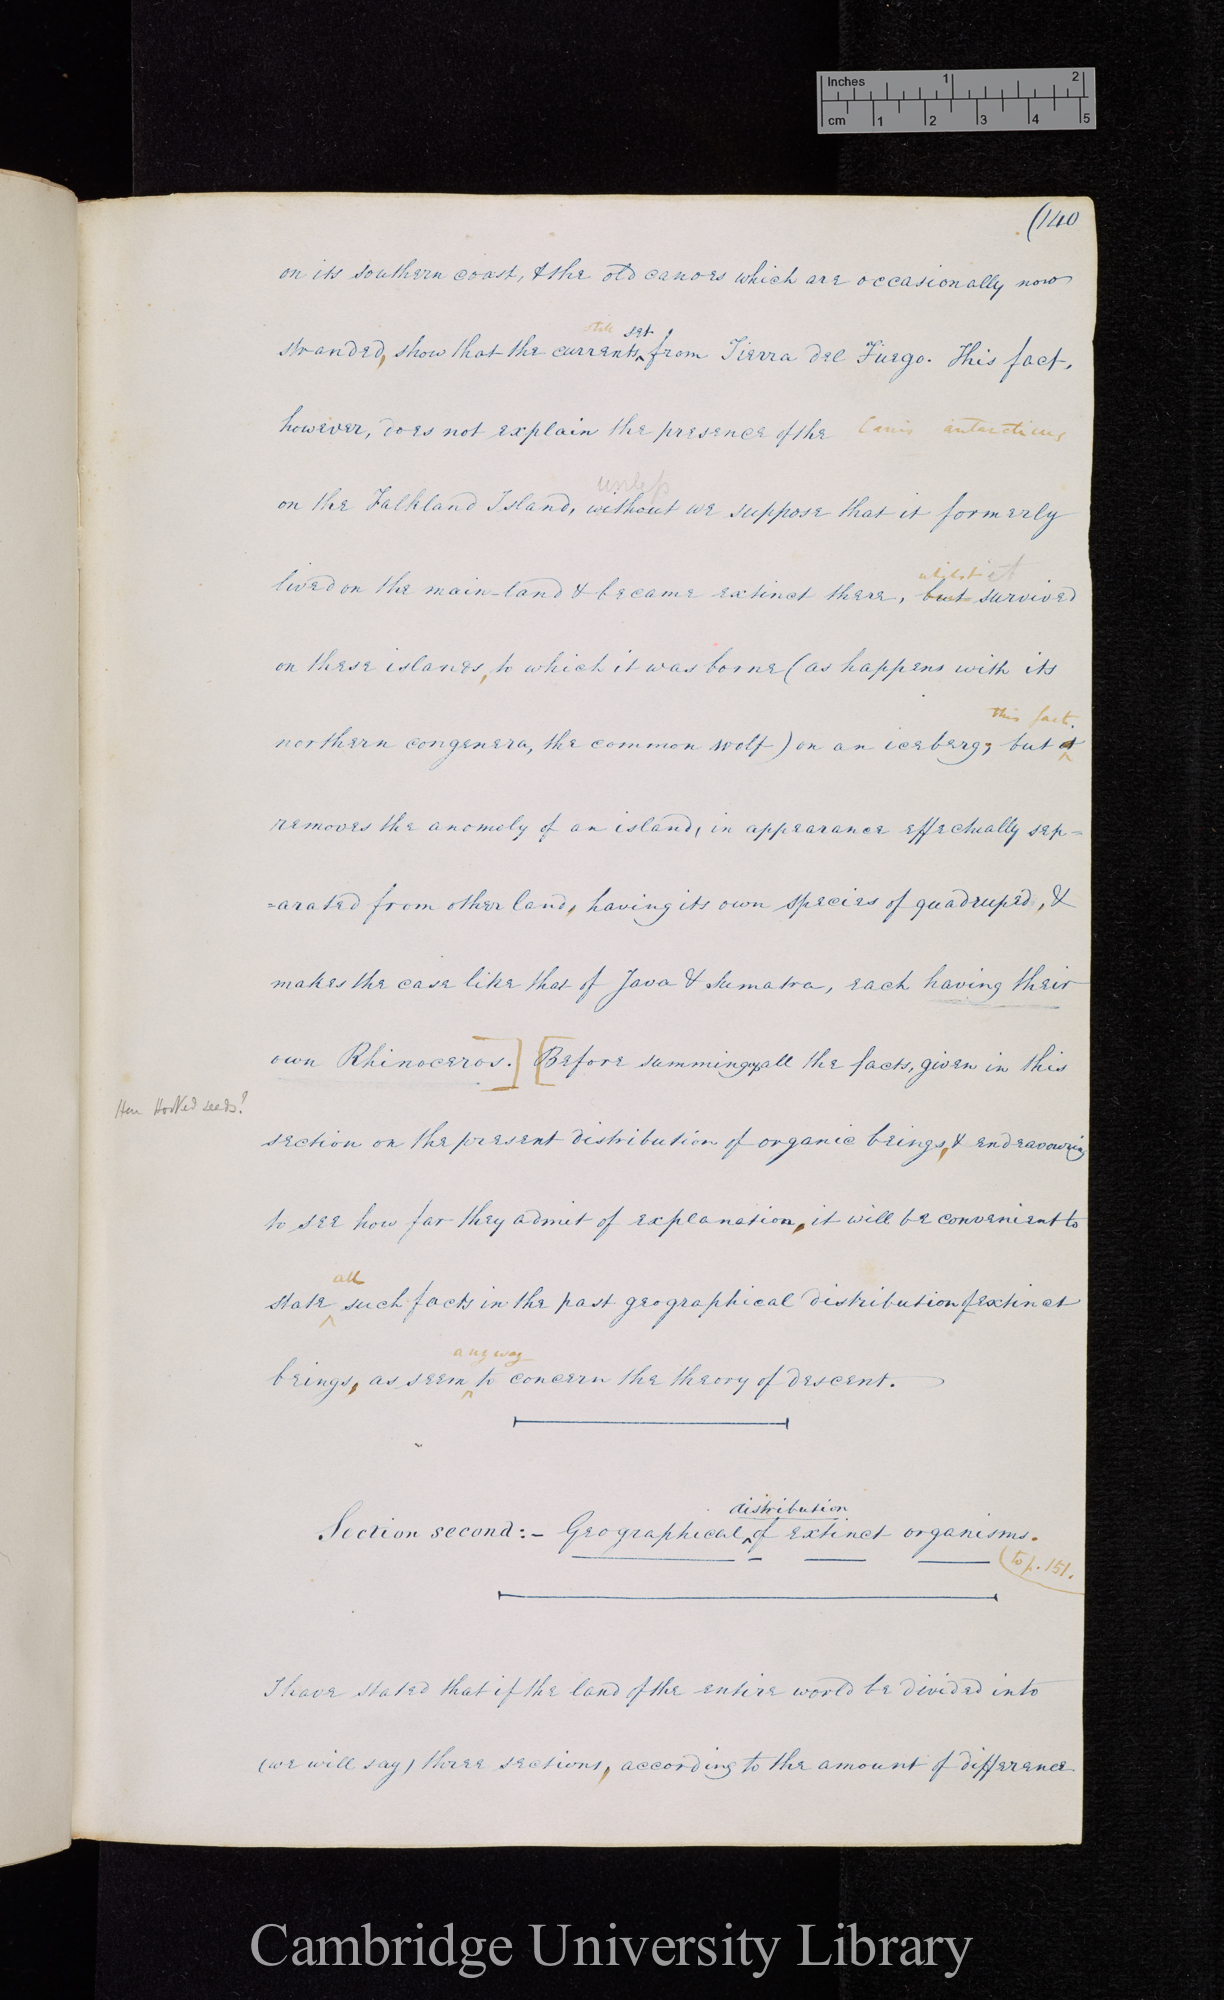 Inches 1 2
cm 1 2 3 4 5
(140
on its southern coast, & the old canoes which are occasionally now
still set
stranded, show that the currents from Tierra del Fuego. This fact,
however, does not explain the presence of the Canis antarcticus
unless
on the Falkland Island, without we suppose that it formerly
whilst it
lived on the main-land & became extinct there, but survived
on these islands, to which it was borne (as happens with its
this fact.
northern congenera, the common wolf) on an iceberg; but it
removes the anomoly of an island, in appearance effectually sep=
=arated from other land, having its own species of quadruped, &
makes the case like that of Java & Sumatra, each having their
own Rhinoceros.] [Before summing up all the facts, given in this
Here Hooked seeds?
section on the present distribution of organic beings, & endeavouring
to see how far they admit of explanation, it will be convenient to
all
state such facts in the past geographical distribution of extinct
any way
beings, as seem to concern the theory of descent.
distribution
Section second:- Geographical of extinct organisms.
(to p. 151.
I have stated that if the land of the entire world be divided into
(we will say) three sections, according to the amount of difference
Cambridge University Library